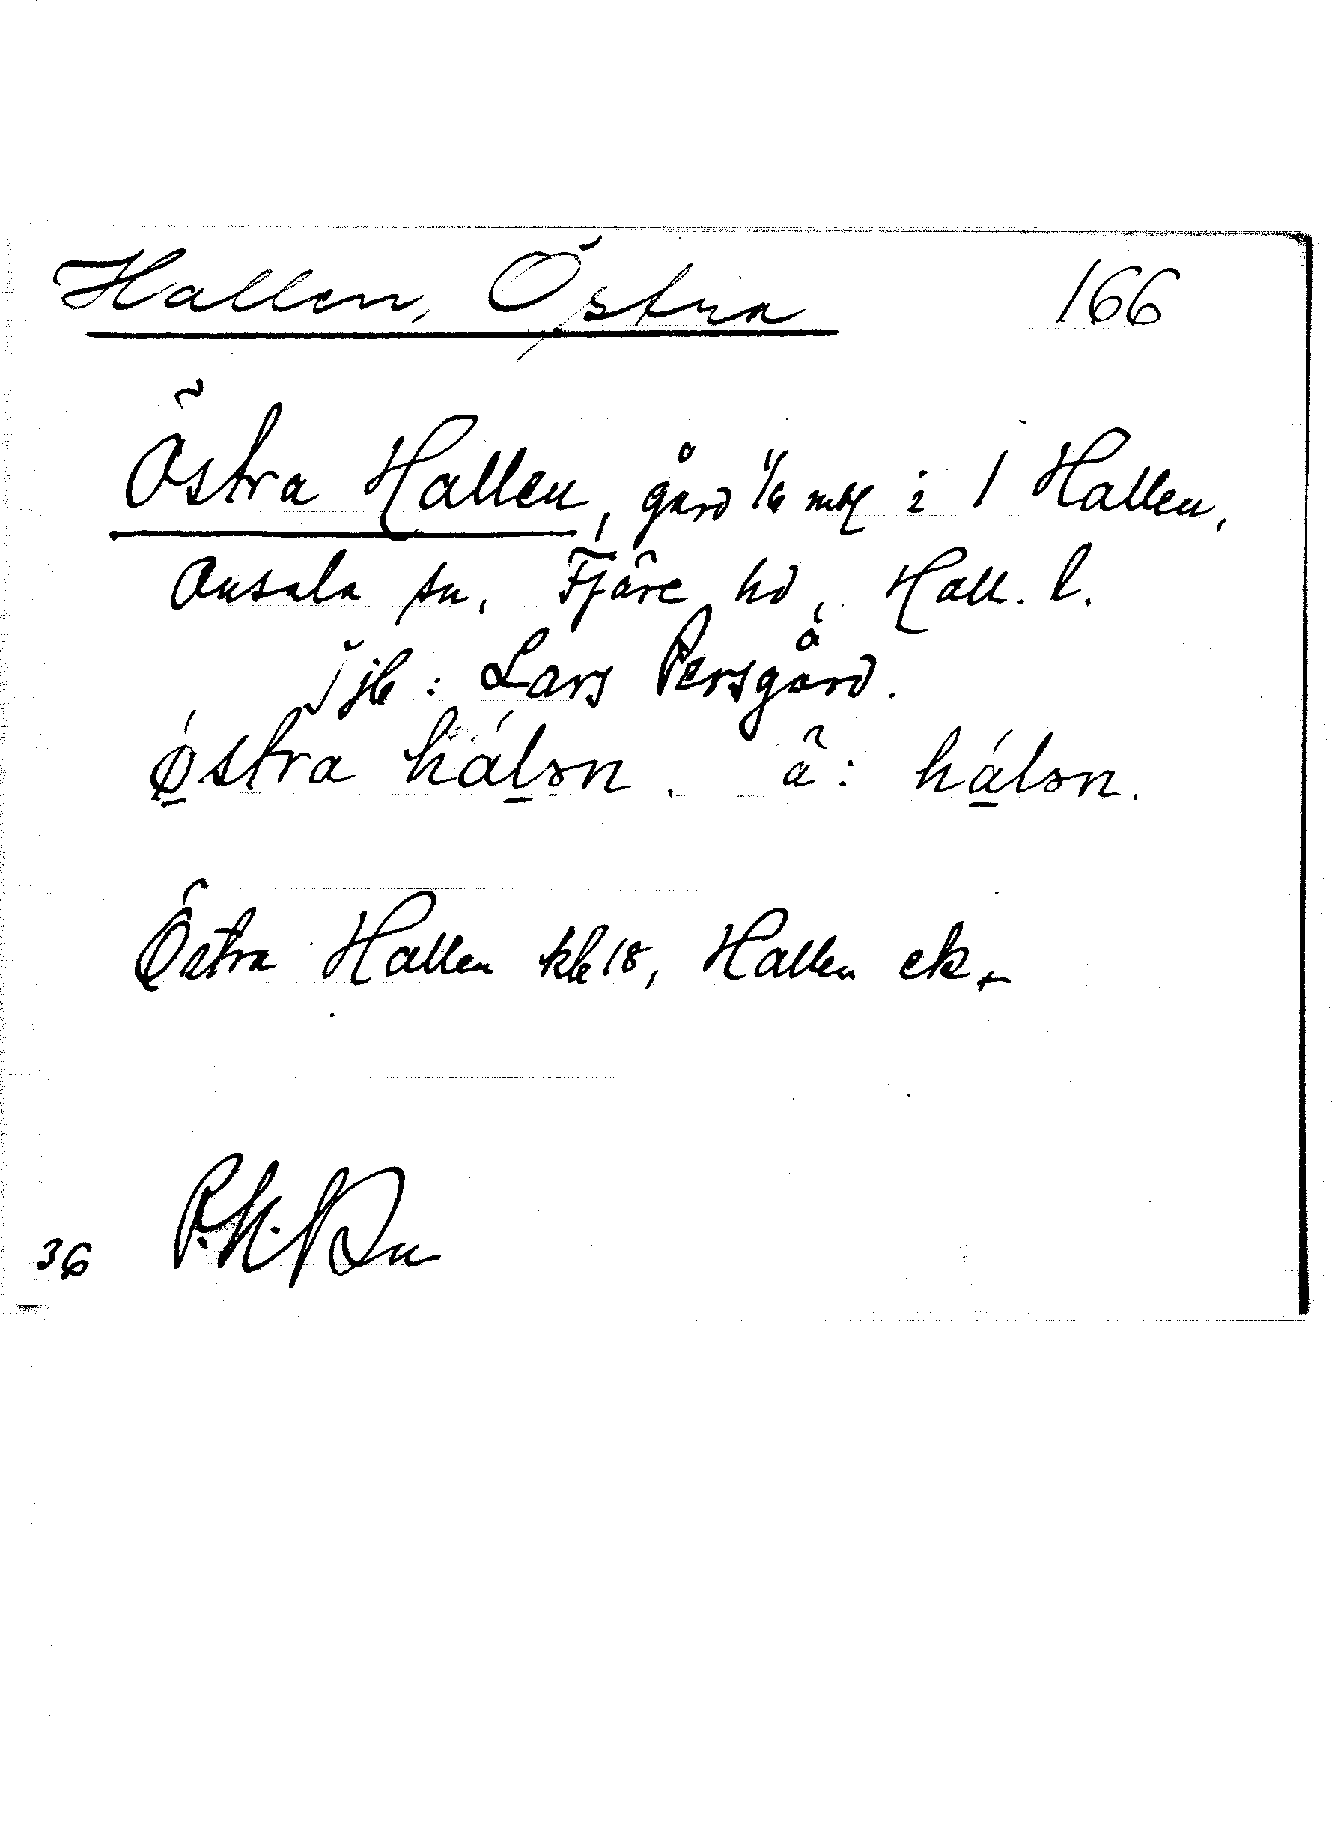 Hallen, Östra 166
Östra Hallen, gård 1/6 mtl i 1 Hallen,
Onsala sn, Fjäre hd, Hall. l.
I jb: Lars Persgård.
Östra hálən. ä: hálən.
Östra Hallen kb 18, Hallen ek.
36